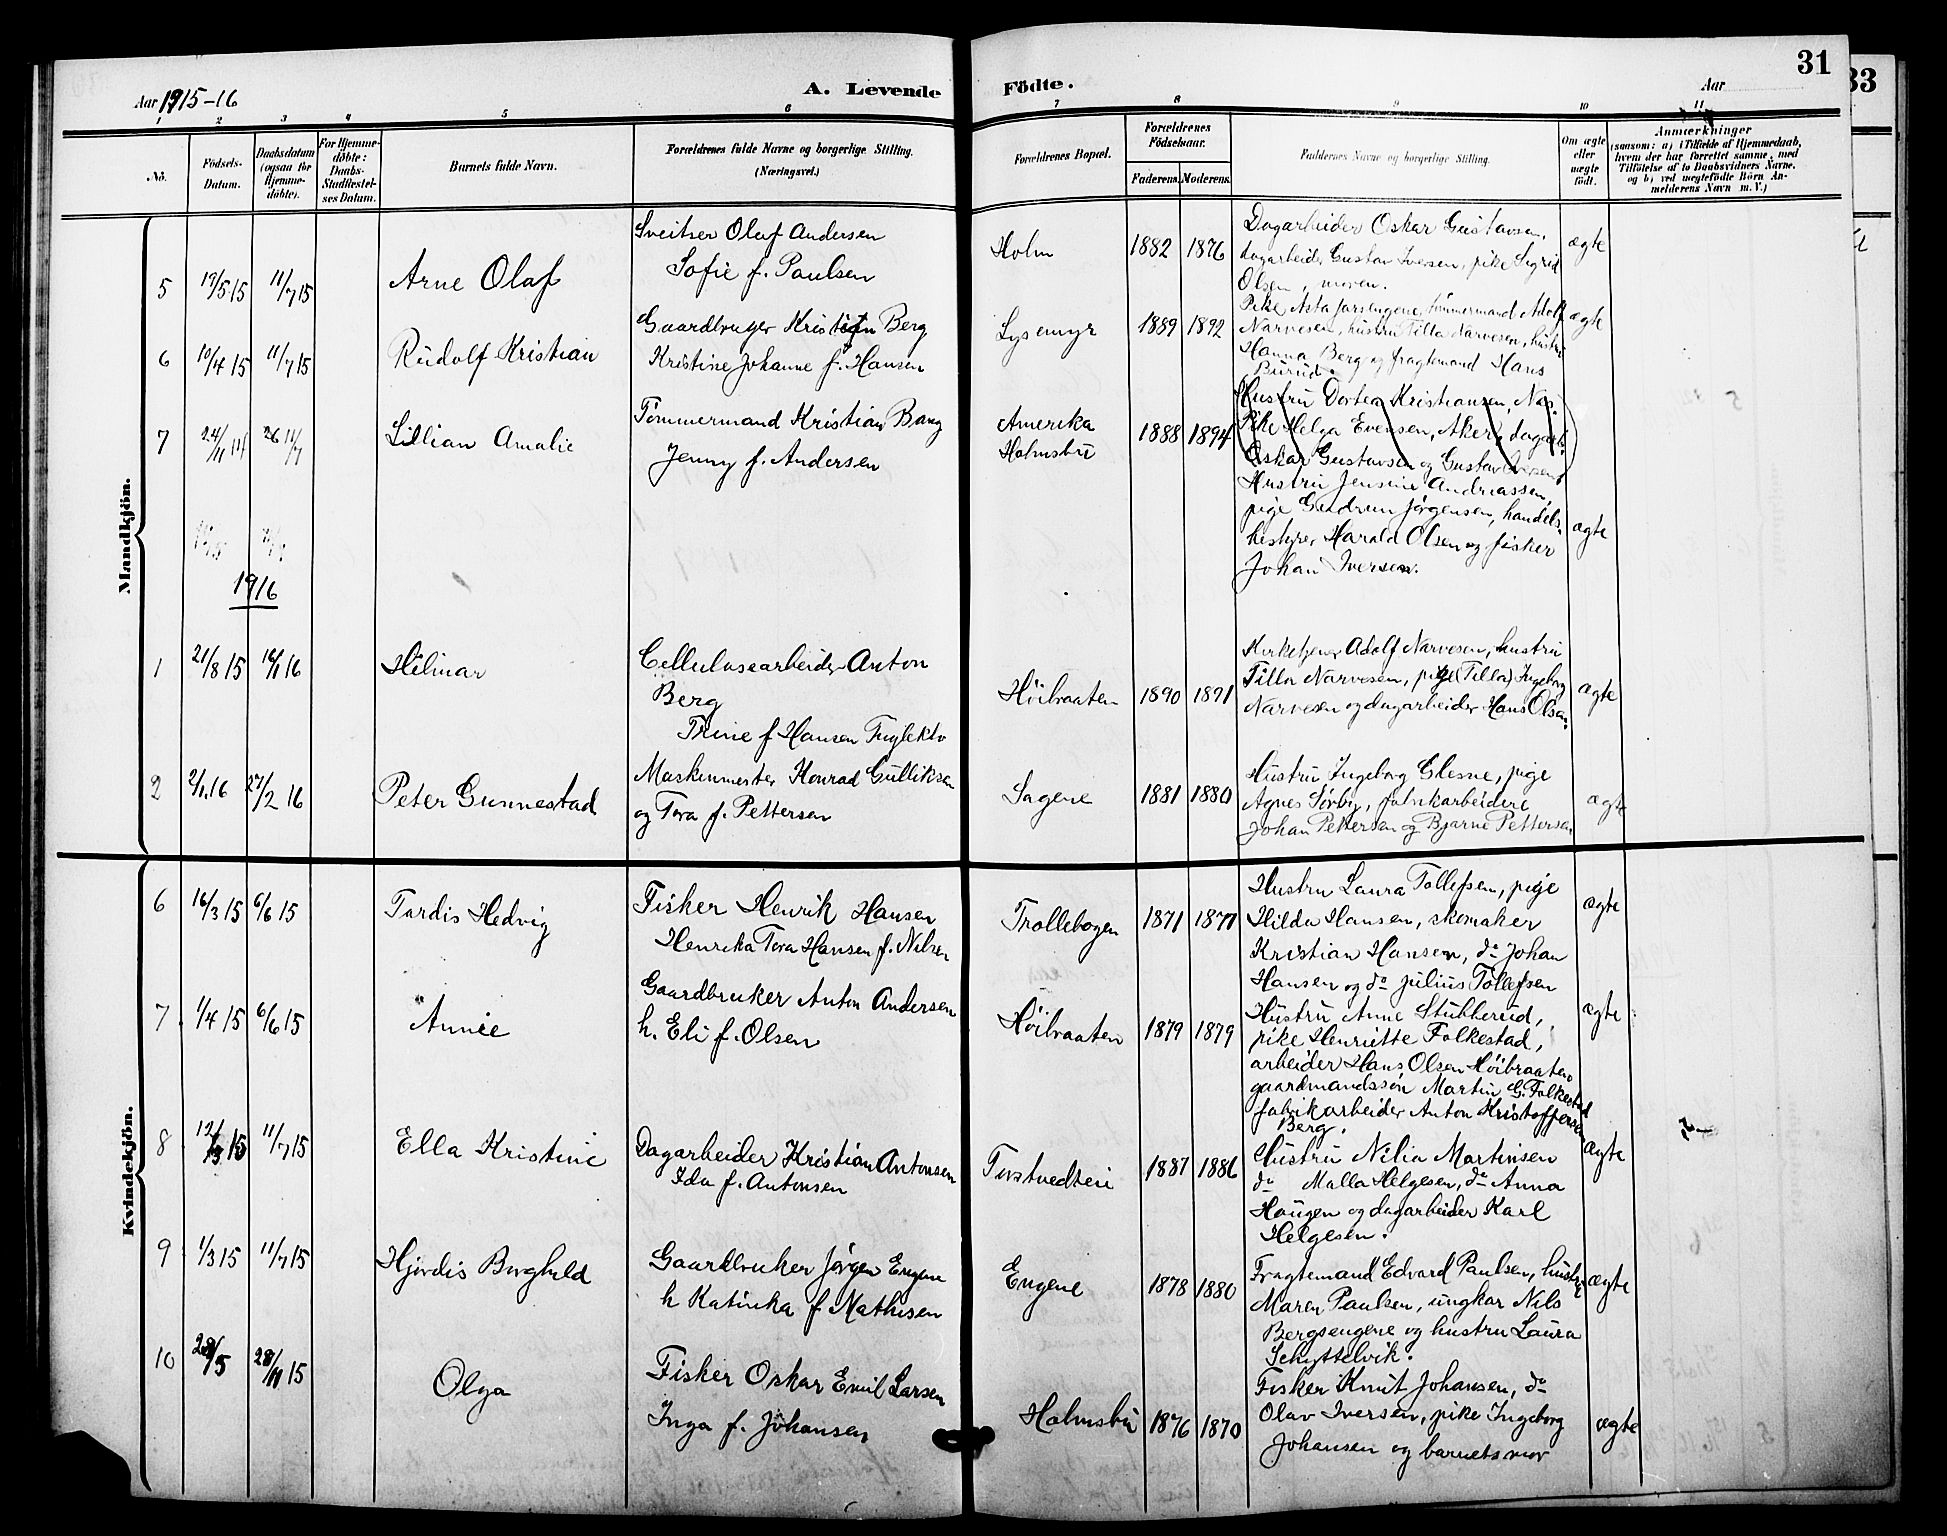 Aar 1915-16
A. Levende
Födte.
Aar
31
33
1 2 3 4 5 6 7 8 9 10 11
No.
Födsels-
Datum.
Daabsdatum
(ogsaa for
Hjemme-
döbte).
For Hjemme-
döbte:
Daabs-
Stadfæstel-
ses Datum.
Barnets fulde Navn.
Forældrenes fulde Navne og borgerlige Stilling.
(Næringsvei.)
Forældrenes Bopæl.
Forældrenes
Födselsaar.
Faderens. Moderens.
Faddernes Navne og borgerlige Stilling.
Om ægte
eller
uægte
födt.
Anmærkninger
(saasom: a) i Tilfælde af Hjemmedaab,
hvem der har forrettet samme, med
Tilföielse af to Daabsvidners Navne.
og b) ved uægtefödte Börn An-
melderens Navn m. V.)
Mandkjön.
5 19/5 15 11/7 15 Arne Olaf
Sveitser Olaf Andersen
Sofie f. Paulsen
Holm 1882 1876
Dagarbeider Oskar Gustavsen,
dagarbeider Gustav Iversen, pike Sigrid
Olsen, moren.
ægte
6 10/4 15 11/7 15 Rudolf Kristian
Gaardbruger Kristian Berg
Kristine Johanne f. Hansen
Lysemyr 1889 1892
Pike Asta Jarsengene, tømmermand Adolf
Narvesen, hustru Tilla Narvesen, hustru
Hanna Berg og fragtemand Hans
Burud.
ægte
7 24/11 14 26 11/7 Lillian Amalie
Tømmermand Kristian Bang
Jenny f. Andersen
Amerika
Holmsbu
1888 1894
Hustru Dortea Kristiansen, Næs.
Pike Helga Evensen, Aker, dagarb.
Oskar Gustavsen og Gustav Iversen
Hustru Jensine Andreassen,
pige Gudrun Jørgensen, handels-
bestyrer Harald Olsen og fisker
Johan Iversen.
ægte
1916
1 21/8 15 16/1 16 Hilmar
Cellulosearbeider Anton
Berg
Trine f Hansen Fuglekto
Høibraaten 1890 1891
Kirketjener Adolf Narvesen, hustru
Tilla Narvesen, pige (Tilla) Ingeborg
Narvesen og dagarbeider Hans Olsen.
ægte
2 2/1 16 27/2 16 Peter Gunnestad
Maskinmester Konrad Gulliksen
og Tora f. Pettersen
Sagene 1881 1880
Hustru Ingeborg Glesne, pige
Agnes Sørby, fabrikarbeidere
Johan Pettersen og Bjarne Pettersen
ægte
Kvindekjön.
6 16/3 15 6/6 15 Tordis Hedvig
Fisker Henrik Hansen
Henrika Tora Hansen f. Nilsen
Trollebogen 1871 1877
Hustru Laura Tollefsen, pige
Hilda Hansen, skomaker
Kristian Hansen, do Johan
Hansen og do Julius Tollefsen
ægte
7 1/4 15 6/6 15 Annie
Gaardbruker Anton Andersen
h. Eli f. Olsen
Høibraaten 1879 1879
Hustru Anne Stubberud,
pike Henriette Folkestad,
arbeider Hans Olsen Høibraaten
gaardmandssøn Martin G. Folkestad
fabrikarbeider Anton Kristoffersen
Berg.
ægte
8 12/3 15 11/7 15 Ella Kristine
Dagarbeider Kristian Antonsen
Ida f. Antonsen
Torstvedteie 1887 1886
Hustru Nilia Martinsen
do Malla Helgesen, do Anna
Haugen og dagarbeider Karl
Helgesen.
ægte
9 1/3 15 11/7 15 Hjørdis Borghild
Gaardbruker Jørgen Engene
h Katinka f Mathisen
Engene 1878 1880
Fragtemand Edvard Paulsen, hustru
Maren Paulsen, ungkar Nils
Bergsengene og hustru Laura
Schyttelvik.
ægte
10 28/5 28/11 15 Olga
Fisker Oskar Emil Larsen
Inga f. Johansen
Holmsbu 1876 1870
Fisker Knut Johansen, do
Olav Iversen, pike Ingeborg
Johansen og barnets mor
ægte